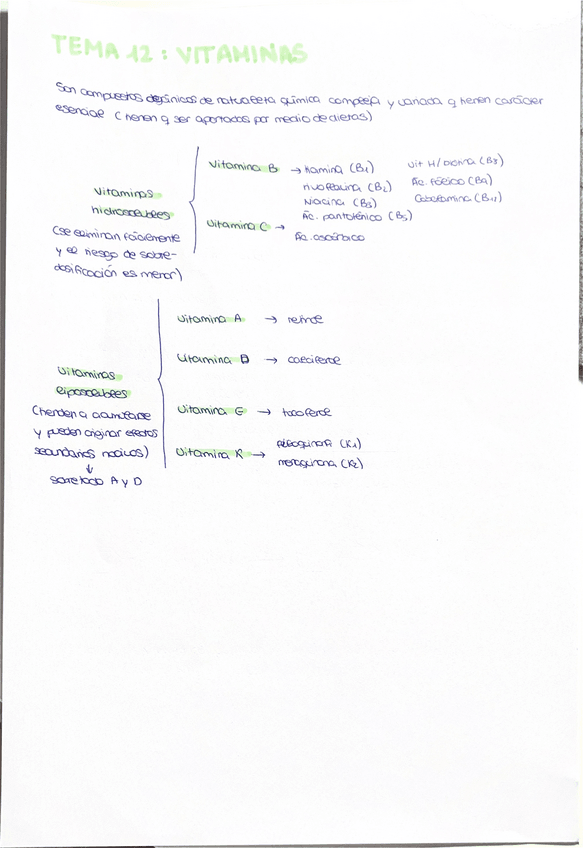 TEMA 12 : VITAMINAS
Son compuestos orgánicos de naturaleza química compleja y variada q tienen carácter
esencial (tienen q ser aportados por medio de dietas)
Vitamina B → tiamina (B1) vit H/biotina (B8)
riboflavina (B2) Ác. fólico (B9)
Vitaminas Niacina (B3) Cobalamina (B12)
hidrosolubles Ác. pantoténico (B5)
Vitamina C →
(se eliminan fácilmente Ác. ascórbico
y el riesgo de sobre-
dosificación es menor)
Vitamina A → retinol
Vitamina D → calciferol
Vitaminas
liposolubles
(tienden a acumularse Vitamina E → tocoferol
y pueden originar efectos
secundarios nocivos) Vitamina K → filoquinona (K1)
menaquinona (K2)
↓
sobretodo A y D